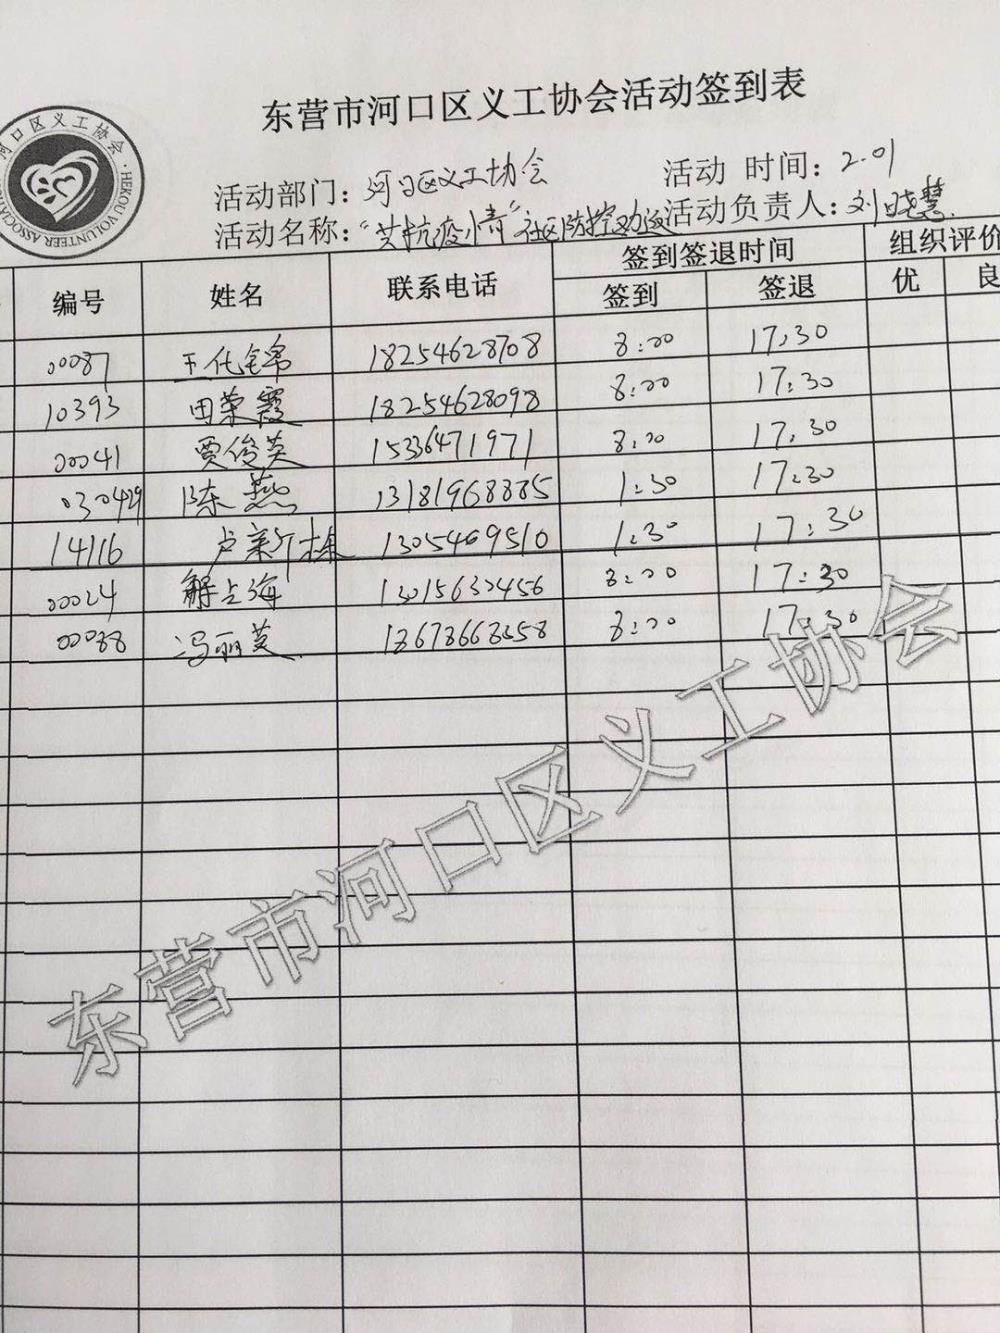 东营市河口区义工协会活动签到表
河口区义工协会·HEKOU VOLUNTEER ASSOCIATION
活动部门：河口区义工协会 活动 时间：2.01
活动名称：“共抗疫情”社区防控劝返 活动负责人：刘晓慧
编号 姓名 联系电话 签到签退时间 组织评价
签到 签退 优 良
00087 18254628708 8:00 17:30
10393 田荣霞 18254628098 8:00 17:30
00041 贾俊英 15336471971 8:00 17:30
陈燕 13181968885 1:30 17:30
14116 卢新栋 13054696510 1:30 17:30
00024 解占海 13015632456 8:00 17:30
00088 冯丽英 8:00 17:30
东营市河口区义工协会